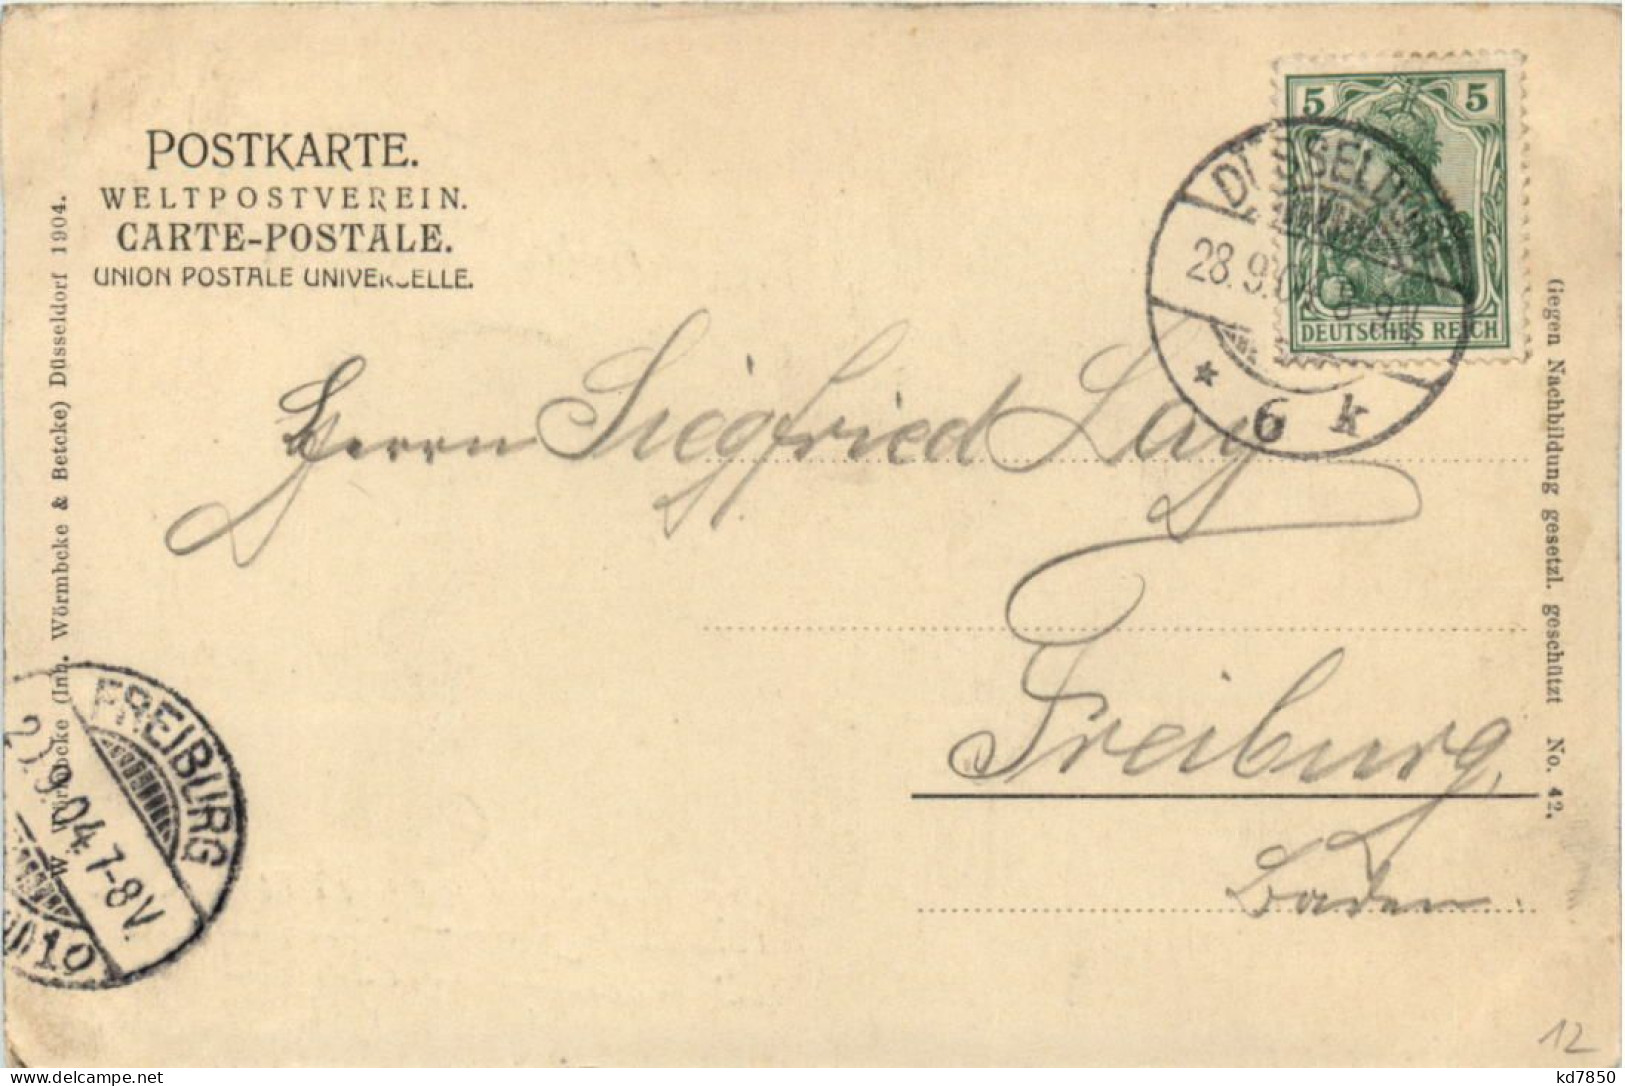 POSTKARTE.
WELTPOSTVEREIN.
CARTE-POSTALE.
UNION POSTALE UNIVERSELLE.
W. Wörmbcke (Inh. Wörmbcke & Betcke) Düsseldorf 1904.
5 5
DEUTSCHES REICH
DÜSSELDORF
28.9.04 8-9N
* 6 k
Herrn Siegfried Lay
Freiburg,
Baden.
Gegen Nachbildung gesetzl. geschützt No. 42.
FREIBURG
9.04.7-8V.
12
kd7850